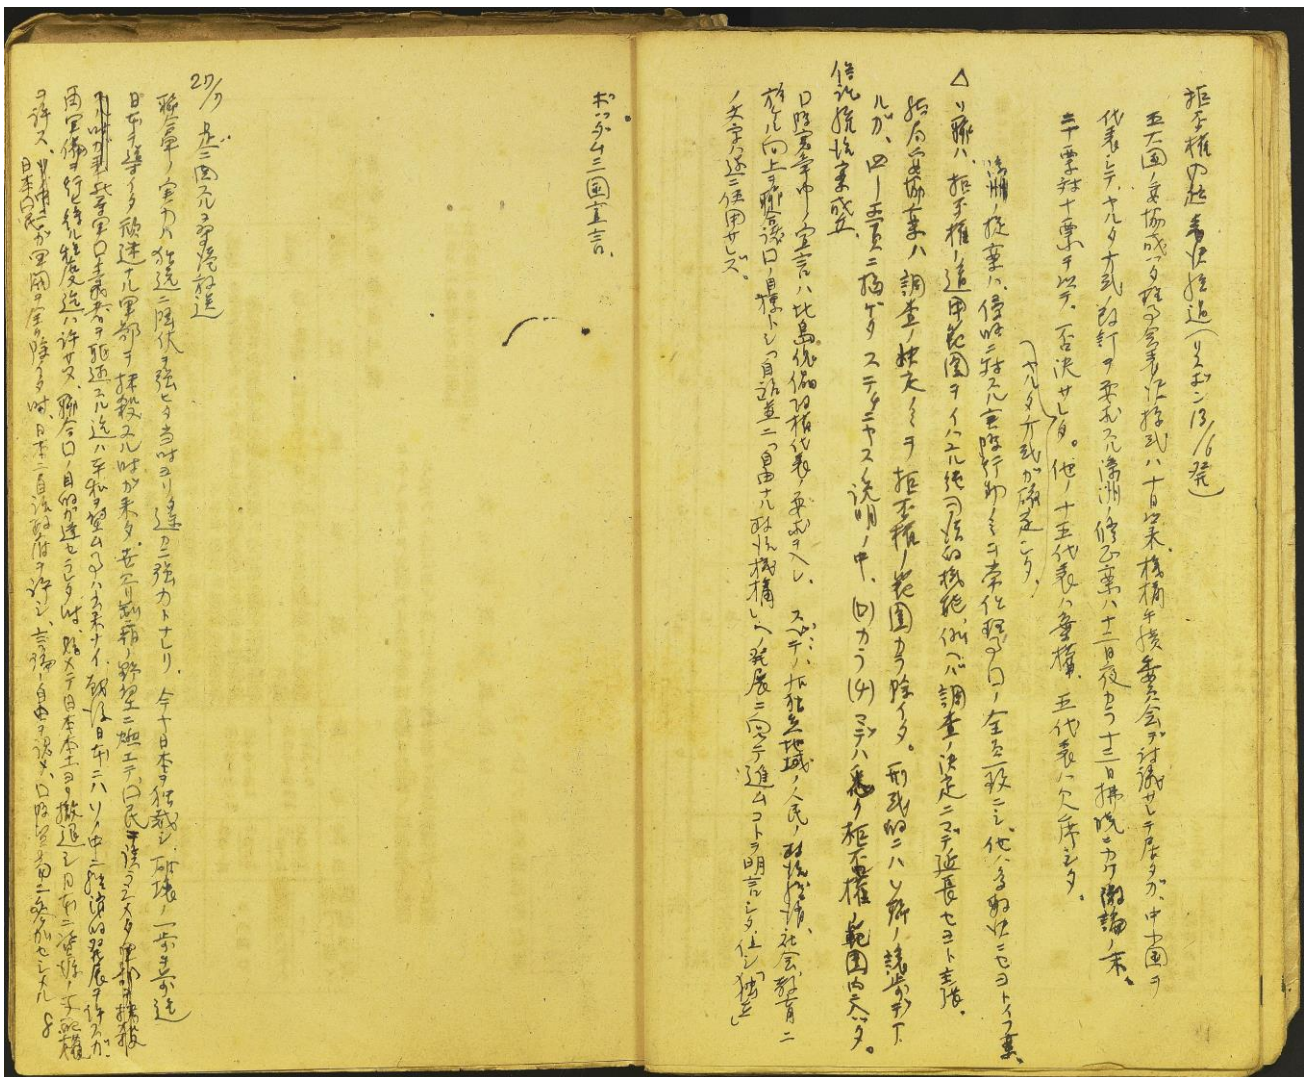 拒否権問題 表決経過(リスボン13/6発)
五大国ノ妥協成ツタ理事会表決様式ハ十日以来、機構手続委員会デ討議サレテ居タガ、中小国ヲ
代表シテ、ヤルタ方式ノ改訂ヲ要求スル濠洲ノ修正案ハ十二日夜カラ十三日払暁ニカケ激論ノ末、
二十票対十票ヲ以テ、否決サレタ。他ノ十五代表ハ棄権、五代表ハ欠席シタ。
(ヤルタ方式ガ確定シタ)
濠洲ノ提案ハ、侵略ニ対スル実際行動ノミヲ常任理事口ノ全員一致ニシ、他ハ多数決ニセヨトイフ案、
△ソ聯ハ、拒否権ノ適用範囲ヲイハユル準司法的機能、例ヘバ調査ノ決定ニマデ延長セヨト主張。
結局妥協案ハ調査ノ決定ノミヲ拒否権ノ範囲カラ除イタ。形式的ニハソ聯ノ譲歩デア
ルガ、四一頁ニ掲ゲタステタニヤスノ説明ノ中、(ロ)カラ(4)マデハ悉ク拒否権ノ範囲内ニ入ツタ。
信託統治案成立
口際憲章中ノ宣言ハ比島傀儡的代表ノ要求ヲ入レ、スベテノ非独立地域ノ人民ノ政治経済、社会教育ニ
於ケル向上ヲ聯合諸口ノ目標トシ「自治並ニ自由ナル政治機構」ヘノ発展ニ向ッテ進ムコトヲ明言シタ、但シ「独立」
ノ文字ハ遂ニ使用サレズ。
ポツダム三国宣言。
27/7
聯合軍ノ実力ハ独逸ニ降伏ヲ強ヒタ当时ヨリ遙カニ強力トナレリ、今ヤ日本ヲ独裁シ、破壊ノ一歩手前迄
日本ヲ導イタ頑迷ナル軍部ヲ抹殺スル時ガ来タ。世界制覇ノ野望ニ燃エテ、口民ヲ誤ラシメタ軍部ヲ抹殺
軍口主義者ヲ駆逐スル迄ハ平和ヲ望ム事ハ出来ナイ、戦後日本ニハソノ中ニ経済的発展ヲ許スガ、
再軍備ヲ行ヒ得ル程度迄ハ許サヌ、聯合口ノ目的ガ達セラレタ時、始メテ日本本土ヨリ撤退シ日本ニ
ヲ許ス、日本口民ガ軍閥ヲ除イタ時、日本ニ自治政府ヲ許シ、言論ノ自由ヲ認メ、口際貿易ニ参加セシメル